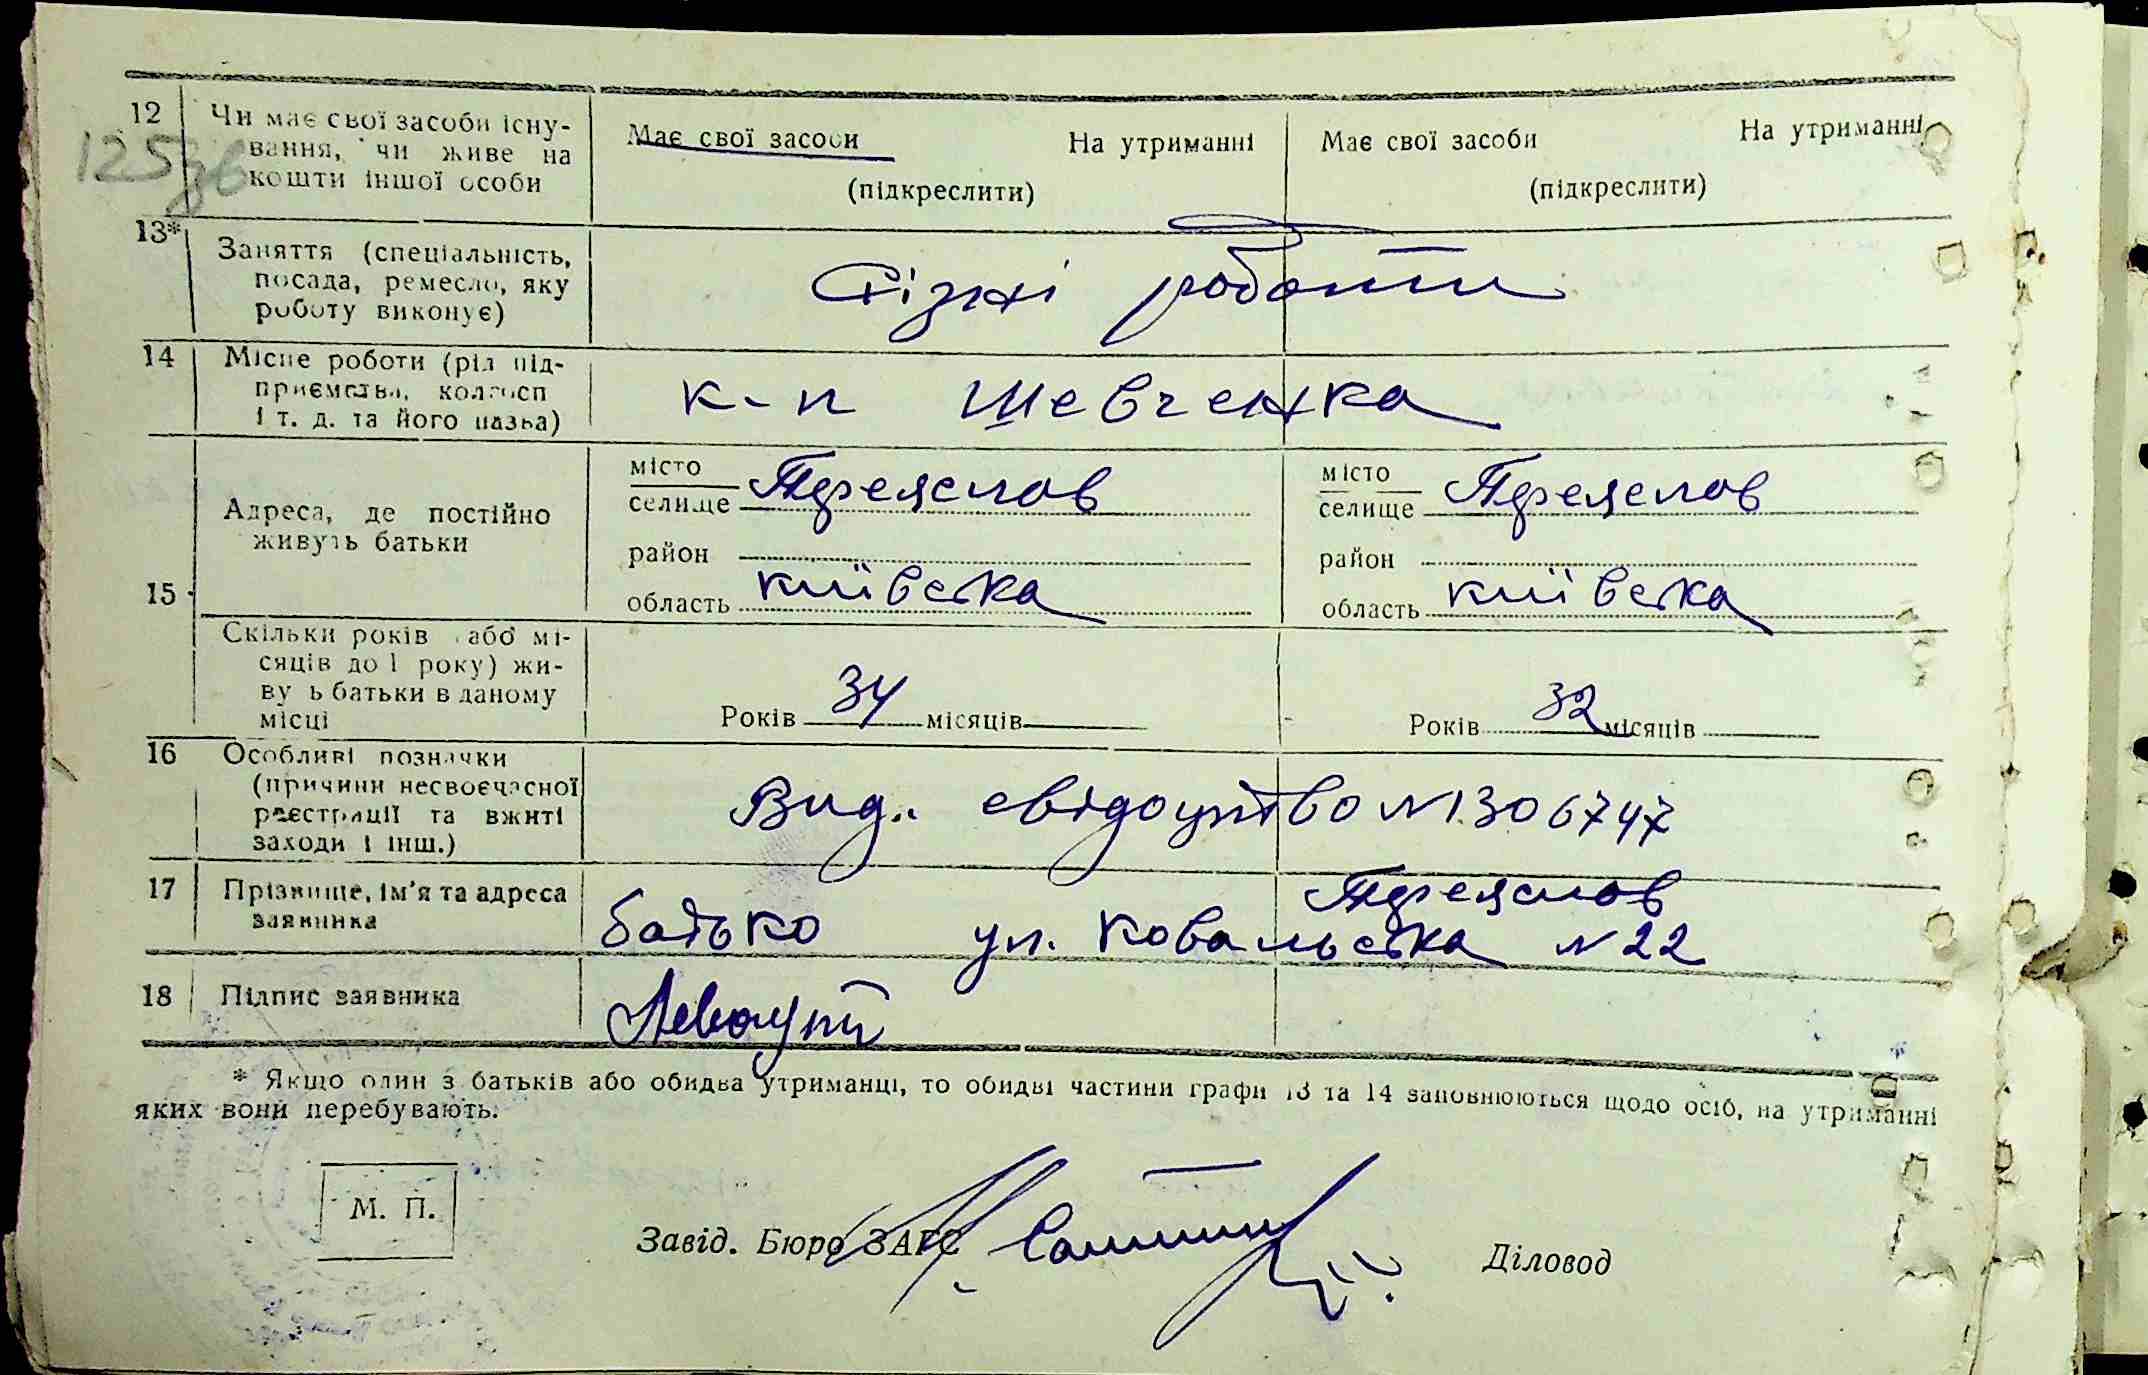 12 Чи має свої засоби існу-
вання, чи живе на
кошти іншої особи
125зв
Має свої засоби На утриманні
(підкреслити)
Має свої засоби На утриманні
(підкреслити)
13* Заняття (спеціальність,
посада, ремесло, яку
роботу виконує)
Різні роботи
14 Місце роботи (рід під-
приємства, колгосп
і т. д. та його назва)
к-п Шевченка
15
Адреса, де постійно
живуть батьки
місто
селище Переяслов
район
область київська
місто
селище Переяслов
район
область київська
Скільки років або мі-
сяців до 1 року) жи-
ву ь батьки в даному
місці
Років 34 місяців
Років 32 місяців
16 Особливі позначки
(причини несвоєчасної
реєстрації та вжиті
заходи і інш.)
Вид. свідоцтво N 306747
17 Прізвище, ім'я та адреса
заявника
Переяслов
батько ул. Ковальська N 22
18 Підпис заявника
* Якщо один з батьків або обидва утриманці, то обидві частини графи 13 та 14 заповнюються щодо осіб, на утриманні
яких вони перебувають.
М. П.
Завід. Бюро ЗАГС
Діловод